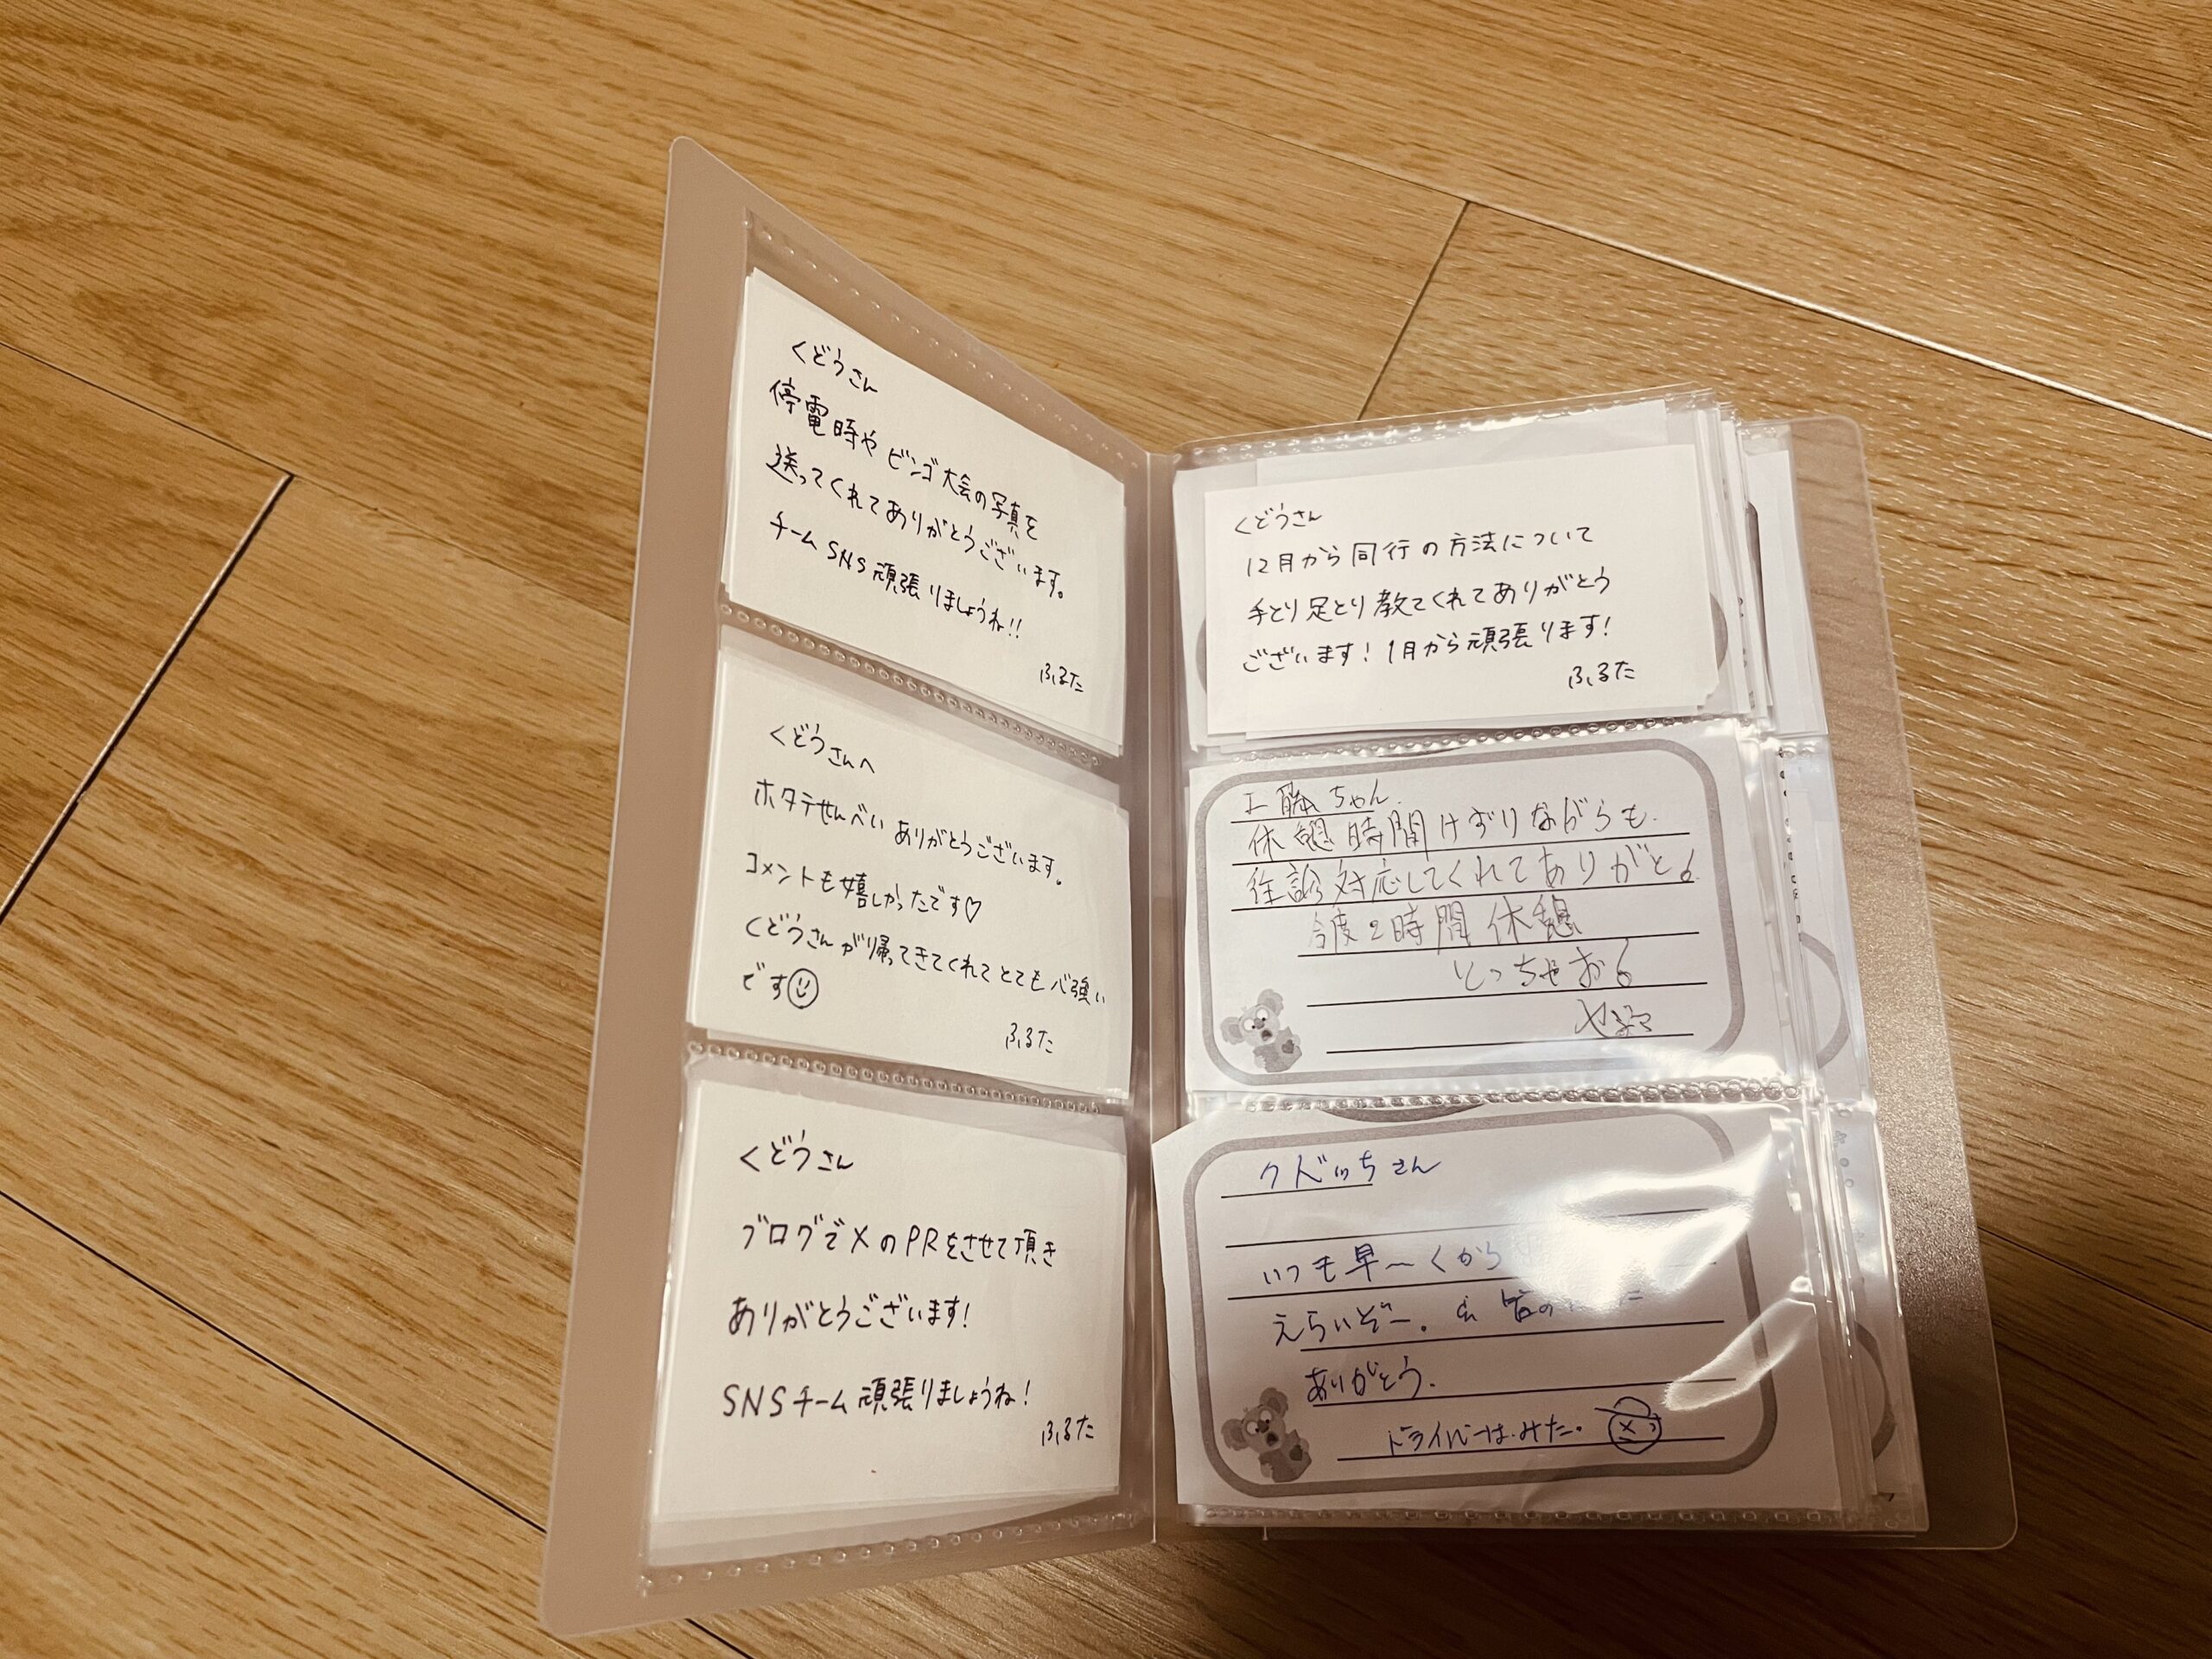 くどうさん
停電時や ビンゴ大会の写真を
送ってくれてありがとうございます。
チームSNS 頑張りましょうね!!
ふるた
くどうさんへ
ホタテせんべい ありがとうございます。
コメントも嬉しかったです♡
くどうさんが帰ってきてくれて とても心強い
です
ふるた
くどうさん
ブログでXのPRをさせて頂き
ありがとうございます!
SNSチーム 頑張りましょうね!
ふるた
くどうさん
12月から同行の方法について
手とり足とり教てくれてありがとう
ございます! 1月から頑張ります!
ふるた
工藤ちゃん
休憩時間けずりながらも
往診対応してくれてありがとう
今度2時間休憩
しっちゃおう
いつも早〜くから
えらいぞー。
ありがとう.
ドライバーは.みた.